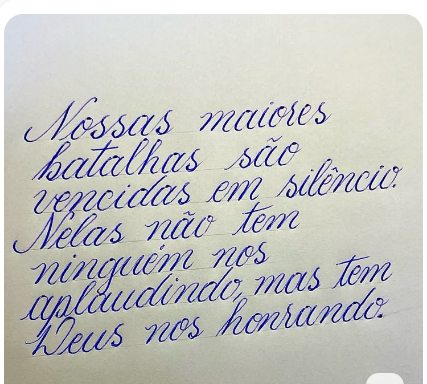 Nossas maiores
batalhas são
vencidas em silêncio.
Nelas não tem
ninguém nos
aplaudindo, mas tem
Deus nos honrando.